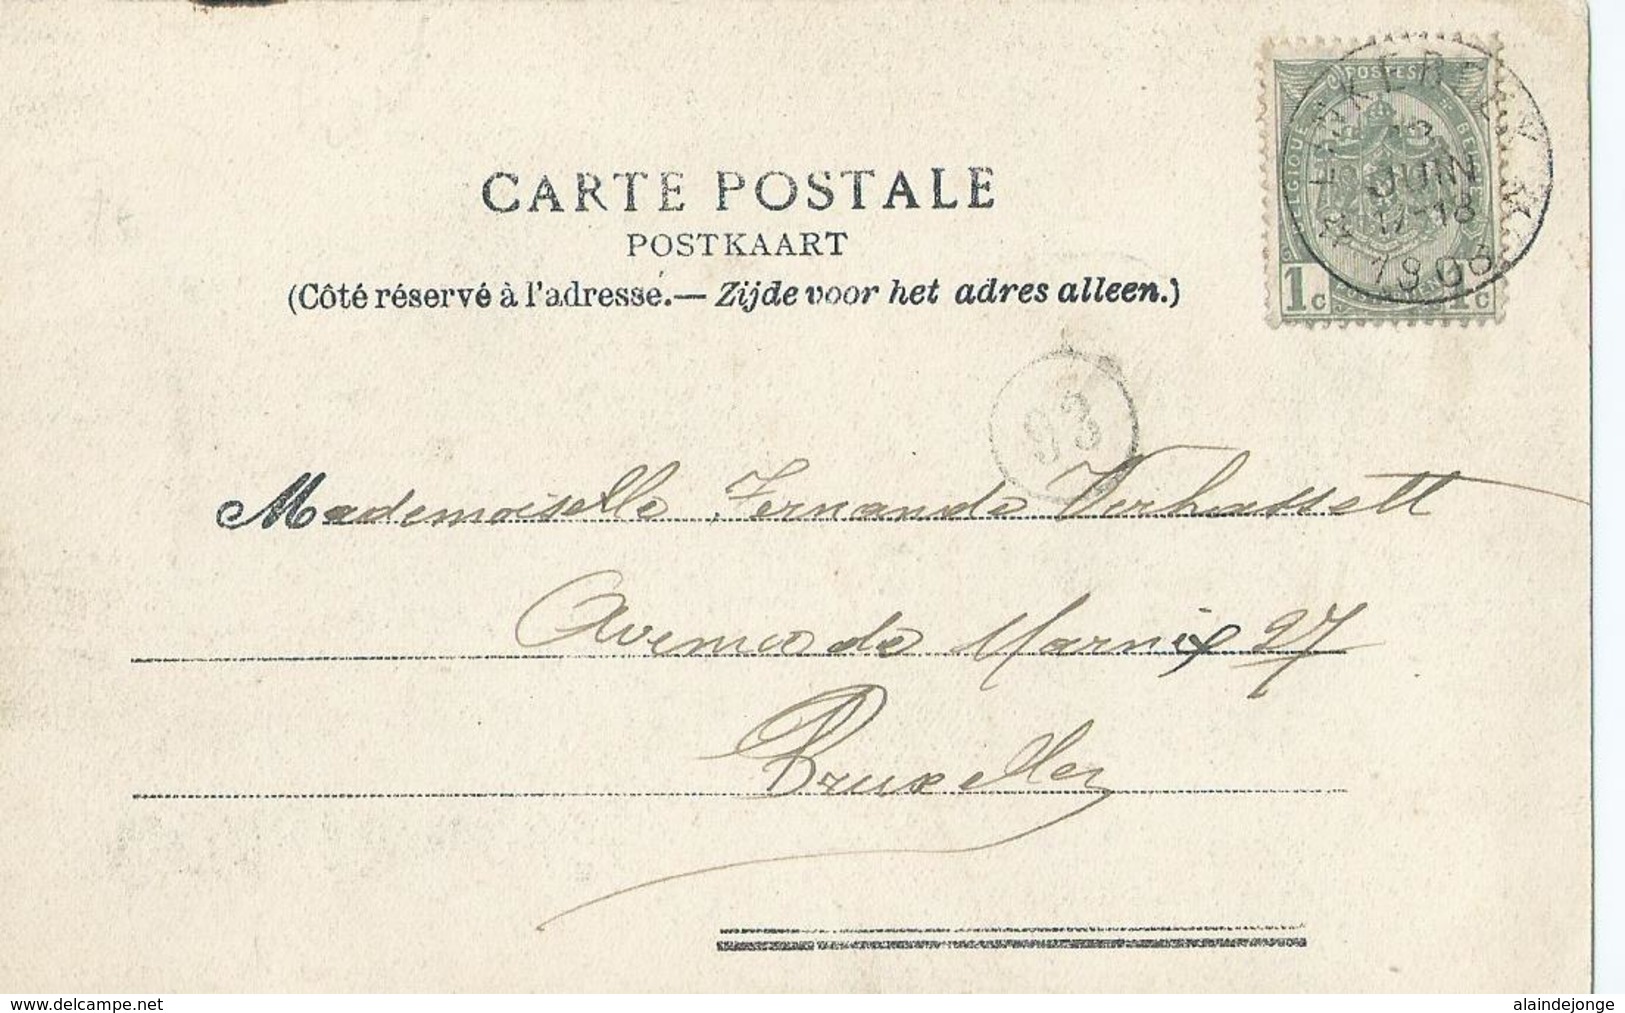 CARTE POSTALE
POSTKAART
(Côté réservé à l'adresse.— Zijde voor het adres alleen.)
POSTES
BELGIQUE
1c 1c
JUIN
17-18
1906
93
Mademoiselle Fernande Verhassett
Avenue de Marnix 27
Bruxelles
www.delcampe.net
alaindejonge